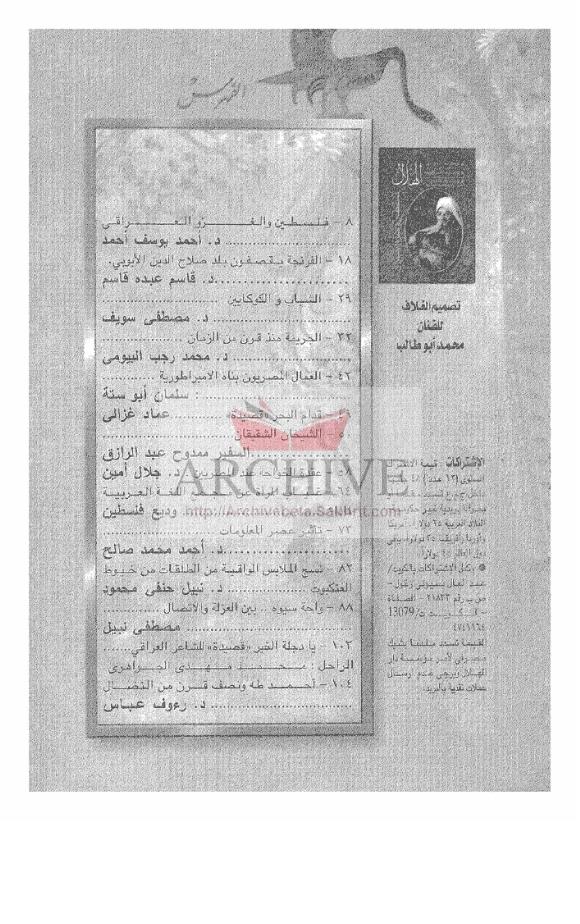 الفهرس
٨ - فلسطين والغزو العراقى
د. أحمد يوسف أحمد
١٨ - الفرنجة يقصفون بلد صلاح الدين الأيوبي.
د. قاسم عبده قاسم
٢٩ - الشباب و الكوكايين
د. مصطفى سويف
٣٢ - الجريمة منذ قرن من الزمان
د. محمد رجب البيومى
٤٢ - العمال المصريون بناة الامبراطورية
سلمان أبو ستة :
قدام البحر «قصيدة» عماد غزالى
الشيخان الشقيقان
السفير ممدوح عبد الرازق
عقدة الخواجة عند المصريين د. جلال أمين
اللغة العربية
وديع فلسطين
٧٣ - تأثير عصر المعلومات
د. أحمد محمد صالح
٨٢ - نسج الملابس الواقية من الطلقات من خيوط
العنكبوت د. نبيل حنفى محمود
٨٨ - واحة سيوه .. بين العزلة والاتصال
مصطفى نبيل
١٠٢ - يا دجلة الخير «قصيدة» للشاعر العراقي
الراحل : محمد مهدى الجواهرى
١٠٤ - أحمد طه ونصف قرن من النضال
د. رءوف عباس
الهلال
تصميم الغلاف
للفنان
محمد أبو طالب
الاشتراكات قيمة الاشتراك
السنوى (١٢ عدد)
البلاد العربية ٢٥ دولارا. أمريكا
وأوربا وأفريقيا ٣٥ دولارا. باقى
دول العالم ٤٥ دولارا.
● وكل الاشتراكات بالكويت/
عبد العال بسيونى زغلول -
ص ب رقم ٢١٨٣٣ - الصفاة
- الكويت ت/ 13079
٤٧٤١١٦٤
القيمة تسدد مقدما بشيك
مصرفى لأمر مؤسسة دار
الهلال ويرجى عدم إرسال
عملات نقدية بالبريد.
ARCHIVE
http://Archivebeta.Sakhrit.com